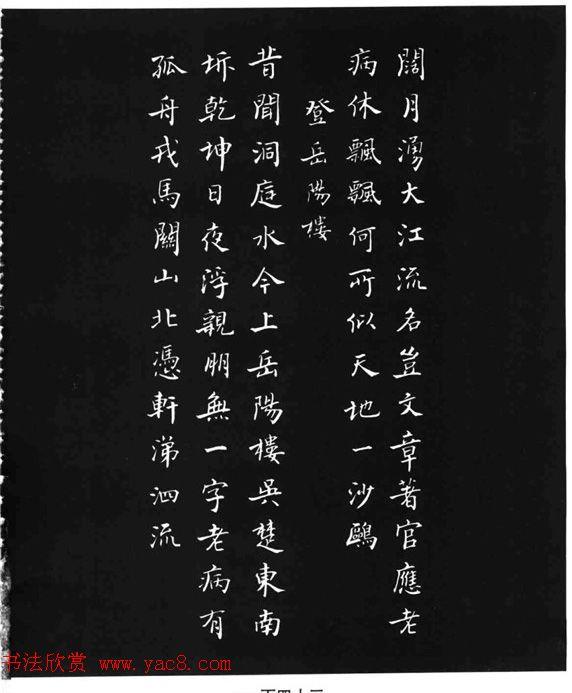 闊月湧大江流名豈文章著官應老
病休飄飄何所似天地一沙鷗
登岳陽樓
昔聞洞庭水今上岳陽樓吳楚東南
坼乾坤日夜浮親朋無一字老病有
孤舟戎馬關山北憑軒涕泗流
书法欣赏 www.yac8.com